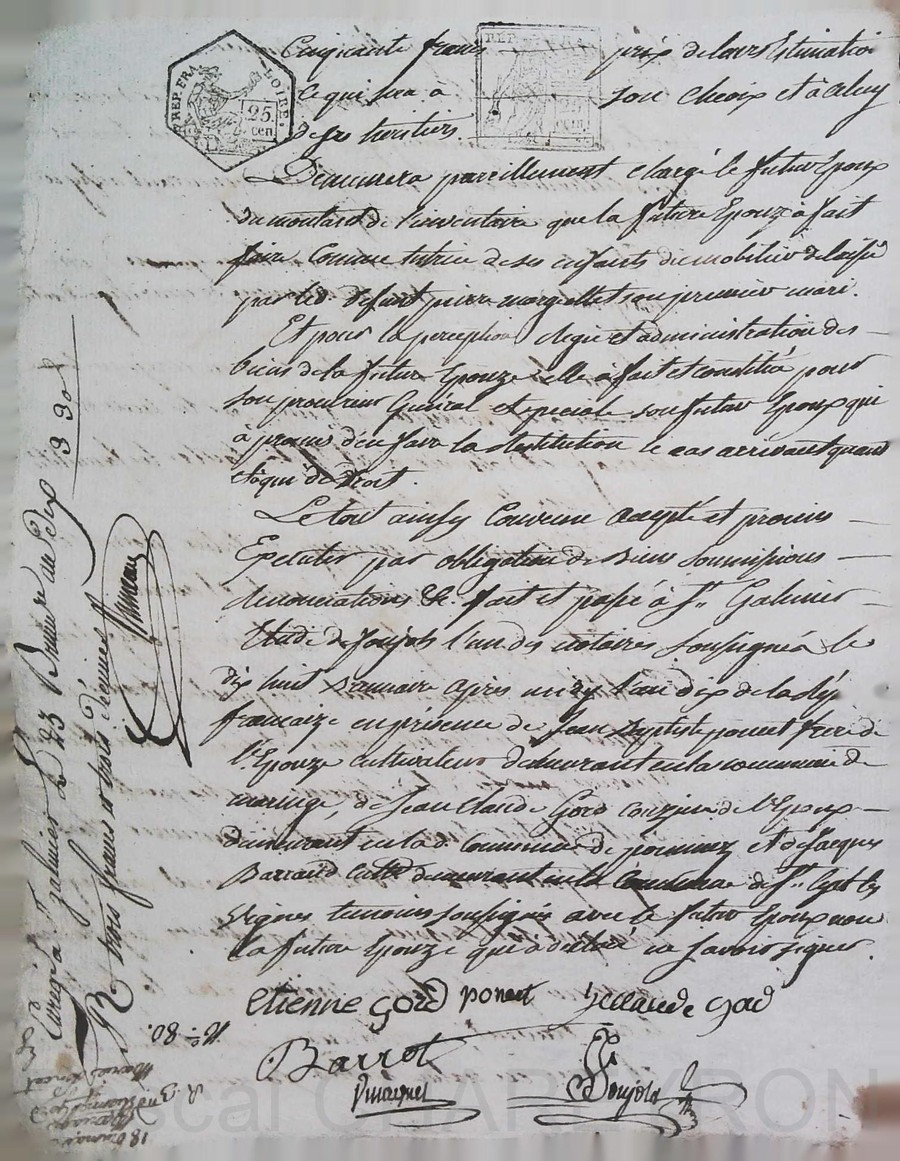 Cinquante francs prix de leur Estimation
Ce qui sera a son choix et à celuy
de ses heritiers.
Demeurera pareillement chargé le futur Epoux
du montant de l'inventaire que la future Epouze à fait
faire Comme tutrice de ses enfants du mobilier delaissé
par led. defunt pierre son premier mari.
Et pour la perception regie et administration des
biens de la future Epouze elle a fait et constitué pour
son procureur General et special son futur Epoux qui
à promis d'en faire la Restitution le cas arrivant quand
et à qui de Droit.
Le tout ainsy Convenu accepté et promis
Executer par obligation de Biens soumissions
Renonciations &c. fait et passé à St. Galmier
Etude de Soujols l'un des notaires soussignés le
Dix huit Brumaire après midy l'an dix de la Rép.
francaize en présence de Jean Baptiste poncet frere de
l'Epouze cultivateur demeurant en la commune de
maringe, de Jean Claude Gord couzin de l'Epoux
demeurant en la d. Commune de et de Jacques
Barraud demeurant en la Commune de St. Cyr les
Vignes temoins soussignés avec le futur Epoux non
la future Epouze qui à déclaré ne savoir signer.
etienne gord ponset Jc claude gord
Barrot
Soujols
Enregé à St. galmier le 23 Brumaire an Dix
R trois francs et trois décimes
3 30
No. 80.
18 Brumaire
Mariage
REP. FRA.
LOIRE.
25.
cen.
REP. FRA.
cen.